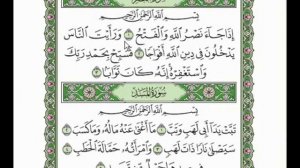 بِسْمِ اللَّهِ الرَّحْمَٰنِ الرَّحِيمِ
إِذَا جَاءَ نَصْرُ اللَّهِ وَالْفَتْحُ ١ وَرَأَيْتَ النَّاسَ
يَدْخُلُونَ فِي دِينِ اللَّهِ أَفْوَاجًا ٢ فَسَبِّحْ بِحَمْدِ رَبِّكَ
وَاسْتَغْفِرْهُ إِنَّهُ كَانَ تَوَّابًا ٣
سُورَةُ المَسَد
بِسْمِ اللَّهِ الرَّحْمَٰنِ الرَّحِيمِ
تَبَّتْ يَدَا أَبِي لَهَبٍ وَتَبَّ ١ مَا أَغْنَىٰ عَنْهُ مَالُهُ وَمَا كَسَبَ ٢
سَيَصْلَىٰ نَارًا ذَاتَ لَهَبٍ ٣ وَامْرَأَتُهُ حَمَّالَةَ الْحَطَبِ ٤
فِي جِيدِهَا حَبْلٌ مِّن مَّسَدٍ